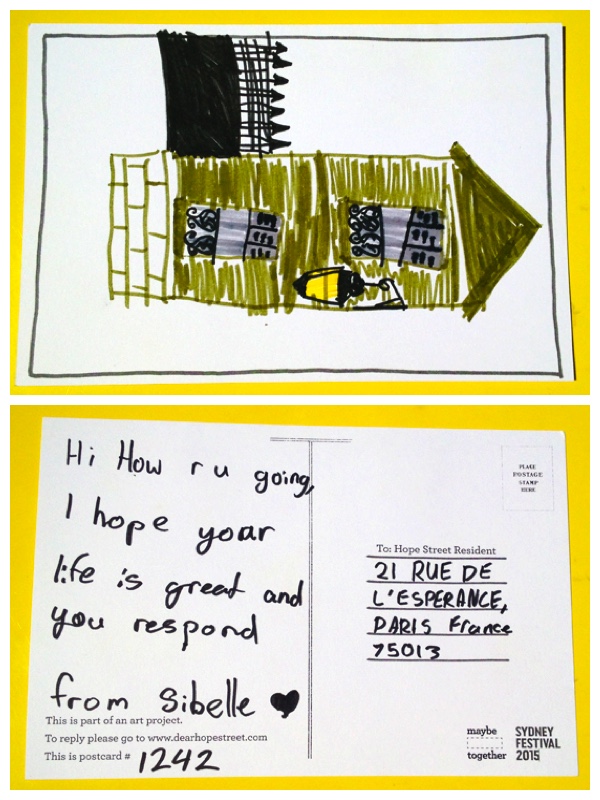 Hi How r u going,
I hope yoar
life is great and
you respond
from Sibelle
This is part of an art project.
To reply please go to www.dearhopestreet.com
This is postcard # 1242
PLACE
POSTAGE
STAMP
HERE
To: Hope Street Resident
21 RUE DE
L'ESPERANCE,
PARIS France
75013
maybe
together
SYDNEY
FESTIVAL
2015